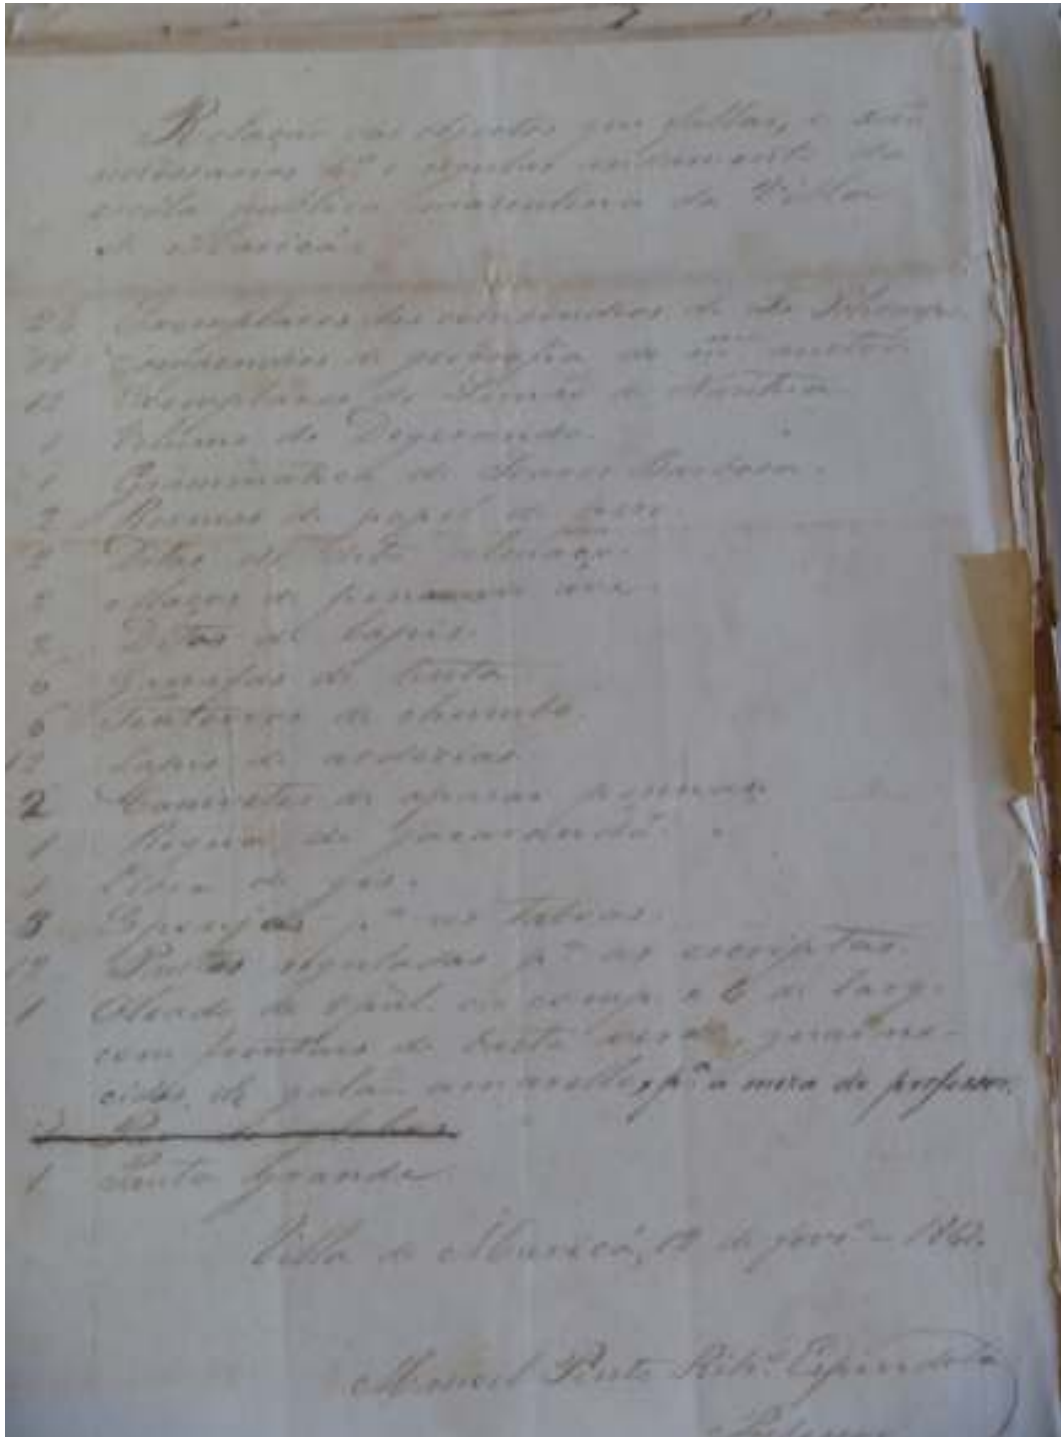 Relação dos objectos que faltão, e são
necessarios p.ª o regular andamento da
escóla publica masculina da Villa
de Maricá.
Exemplares dos compendios de
Compendios de geografia do m.mo auctor.
12 Exemplares de Simão de Nantua
1 Volume de Degerando.
1 Grammatica de Soares Barbosa.
2 Resmas de papel de peso
2 Ditas de dito almaço.
Maços de pennas de ave.
2 Ditos de lapis.
6 Garrafas de tinta
6 Tinteiros de chumbo.
12 Lapis de
2 Canivetes de aparar pennas
1 Regua de jacarandá.
1 Libra de giz.
3 Esponjas p.ª as taboas.
Pautas reguladas p.ª as escriptas.
1 Oleado de 8 pal. de comp. e 6 de larg.
com
de galão amarello, p.ª a mesa do professor.
1 Pauta Grande
Villa de Maricá, de
Manoel Pinto Rib.º Espindola
Professor